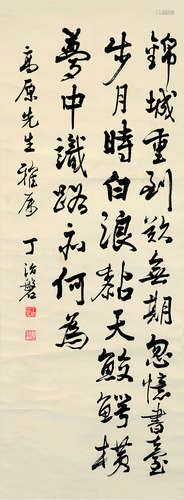 錦城重到歎無期忽憶書臺
步月時白浪黏天鮫鱷橫
夢中識路何為
高原先生雅屬
丁治磐